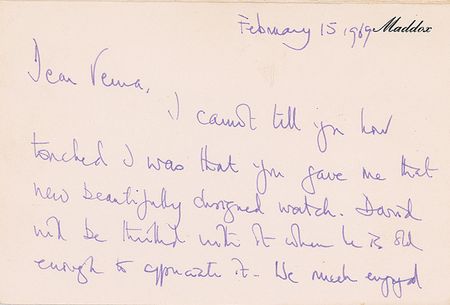 February 15 1969 Maddox
Dear Verna,
I cannot tell you how
touched I was that you gave me that
new beautifully designed watch. David
will be thrilled with it when he is old
enough to appreciate it - We much enjoyed